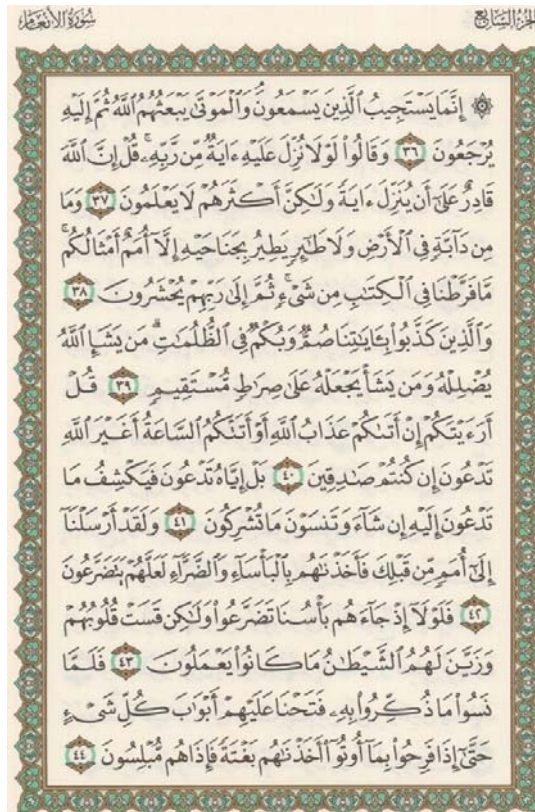 الجزء السابع
سورة الأنعام
۞ إِنَّمَا يَسْتَجِيبُ الَّذِينَ يَسْمَعُونَ وَالْمَوْتَىٰ يَبْعَثُهُمُ اللَّهُ ثُمَّ إِلَيْهِ
يُرْجَعُونَ ٣٦ وَقَالُوا لَوْلَا نُزِّلَ عَلَيْهِ ءَايَةٌ مِّن رَّبِّهِۦ ۚ قُلْ إِنَّ اللَّهَ
قَادِرٌ عَلَىٰٓ أَن يُنَزِّلَ ءَايَةً وَلَٰكِنَّ أَكْثَرَهُمْ لَا يَعْلَمُونَ ٣٧ وَمَا
مِن دَآبَّةٍ فِي الْأَرْضِ وَلَا طَٰٓئِرٍ يَطِيرُ بِجَنَاحَيْهِ إِلَّآ أُمَمٌ أَمْثَالُكُم ۚ
مَّا فَرَّطْنَا فِي الْكِتَٰبِ مِن شَىْءٍ ۚ ثُمَّ إِلَىٰ رَبِّهِمْ يُحْشَرُونَ ٣٨
وَالَّذِينَ كَذَّبُوا بِـَٔايَٰتِنَا صُمٌّ وَبُكْمٌ فِي الظُّلُمَٰتِ ۗ مَن يَشَإِ اللَّهُ
يُضْلِلْهُ وَمَن يَشَأْ يَجْعَلْهُ عَلَىٰ صِرَٰطٍ مُّسْتَقِيمٍ ٣٩ قُلْ
أَرَءَيْتَكُمْ إِنْ أَتَىٰكُمْ عَذَابُ اللَّهِ أَوْ أَتَتْكُمُ السَّاعَةُ أَغَيْرَ اللَّهِ
تَدْعُونَ إِن كُنتُمْ صَٰدِقِينَ ٤٠ بَلْ إِيَّاهُ تَدْعُونَ فَيَكْشِفُ مَا
تَدْعُونَ إِلَيْهِ إِن شَآءَ وَتَنسَوْنَ مَا تُشْرِكُونَ ٤١ وَلَقَدْ أَرْسَلْنَآ
إِلَىٰٓ أُمَمٍ مِّن قَبْلِكَ فَأَخَذْنَٰهُم بِالْبَأْسَآءِ وَالضَّرَّآءِ لَعَلَّهُمْ يَتَضَرَّعُونَ
٤٢ فَلَوْلَآ إِذْ جَآءَهُم بَأْسُنَا تَضَرَّعُوا وَلَٰكِن قَسَتْ قُلُوبُهُمْ
وَزَيَّنَ لَهُمُ الشَّيْطَٰنُ مَا كَانُوا يَعْمَلُونَ ٤٣ فَلَمَّا
نَسُوا مَا ذُكِّرُوا بِهِۦ فَتَحْنَا عَلَيْهِمْ أَبْوَٰبَ كُلِّ شَىْءٍ
حَتَّىٰٓ إِذَا فَرِحُوا بِمَآ أُوتُوٓا أَخَذْنَٰهُم بَغْتَةً فَإِذَا هُم مُّبْلِسُونَ ٤٤